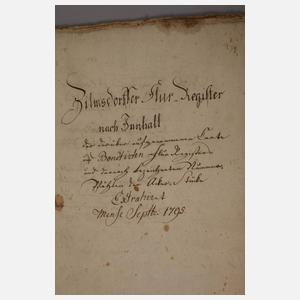 Zilmsdorffer Flur-Register
nach Innhalt
der darüber aufgenommenen Carte
Bonitirten Flur Register
und darnach bezeichneten Nummern
der Acker-Stücke
Extrahiret
Mense Septbr. 1795